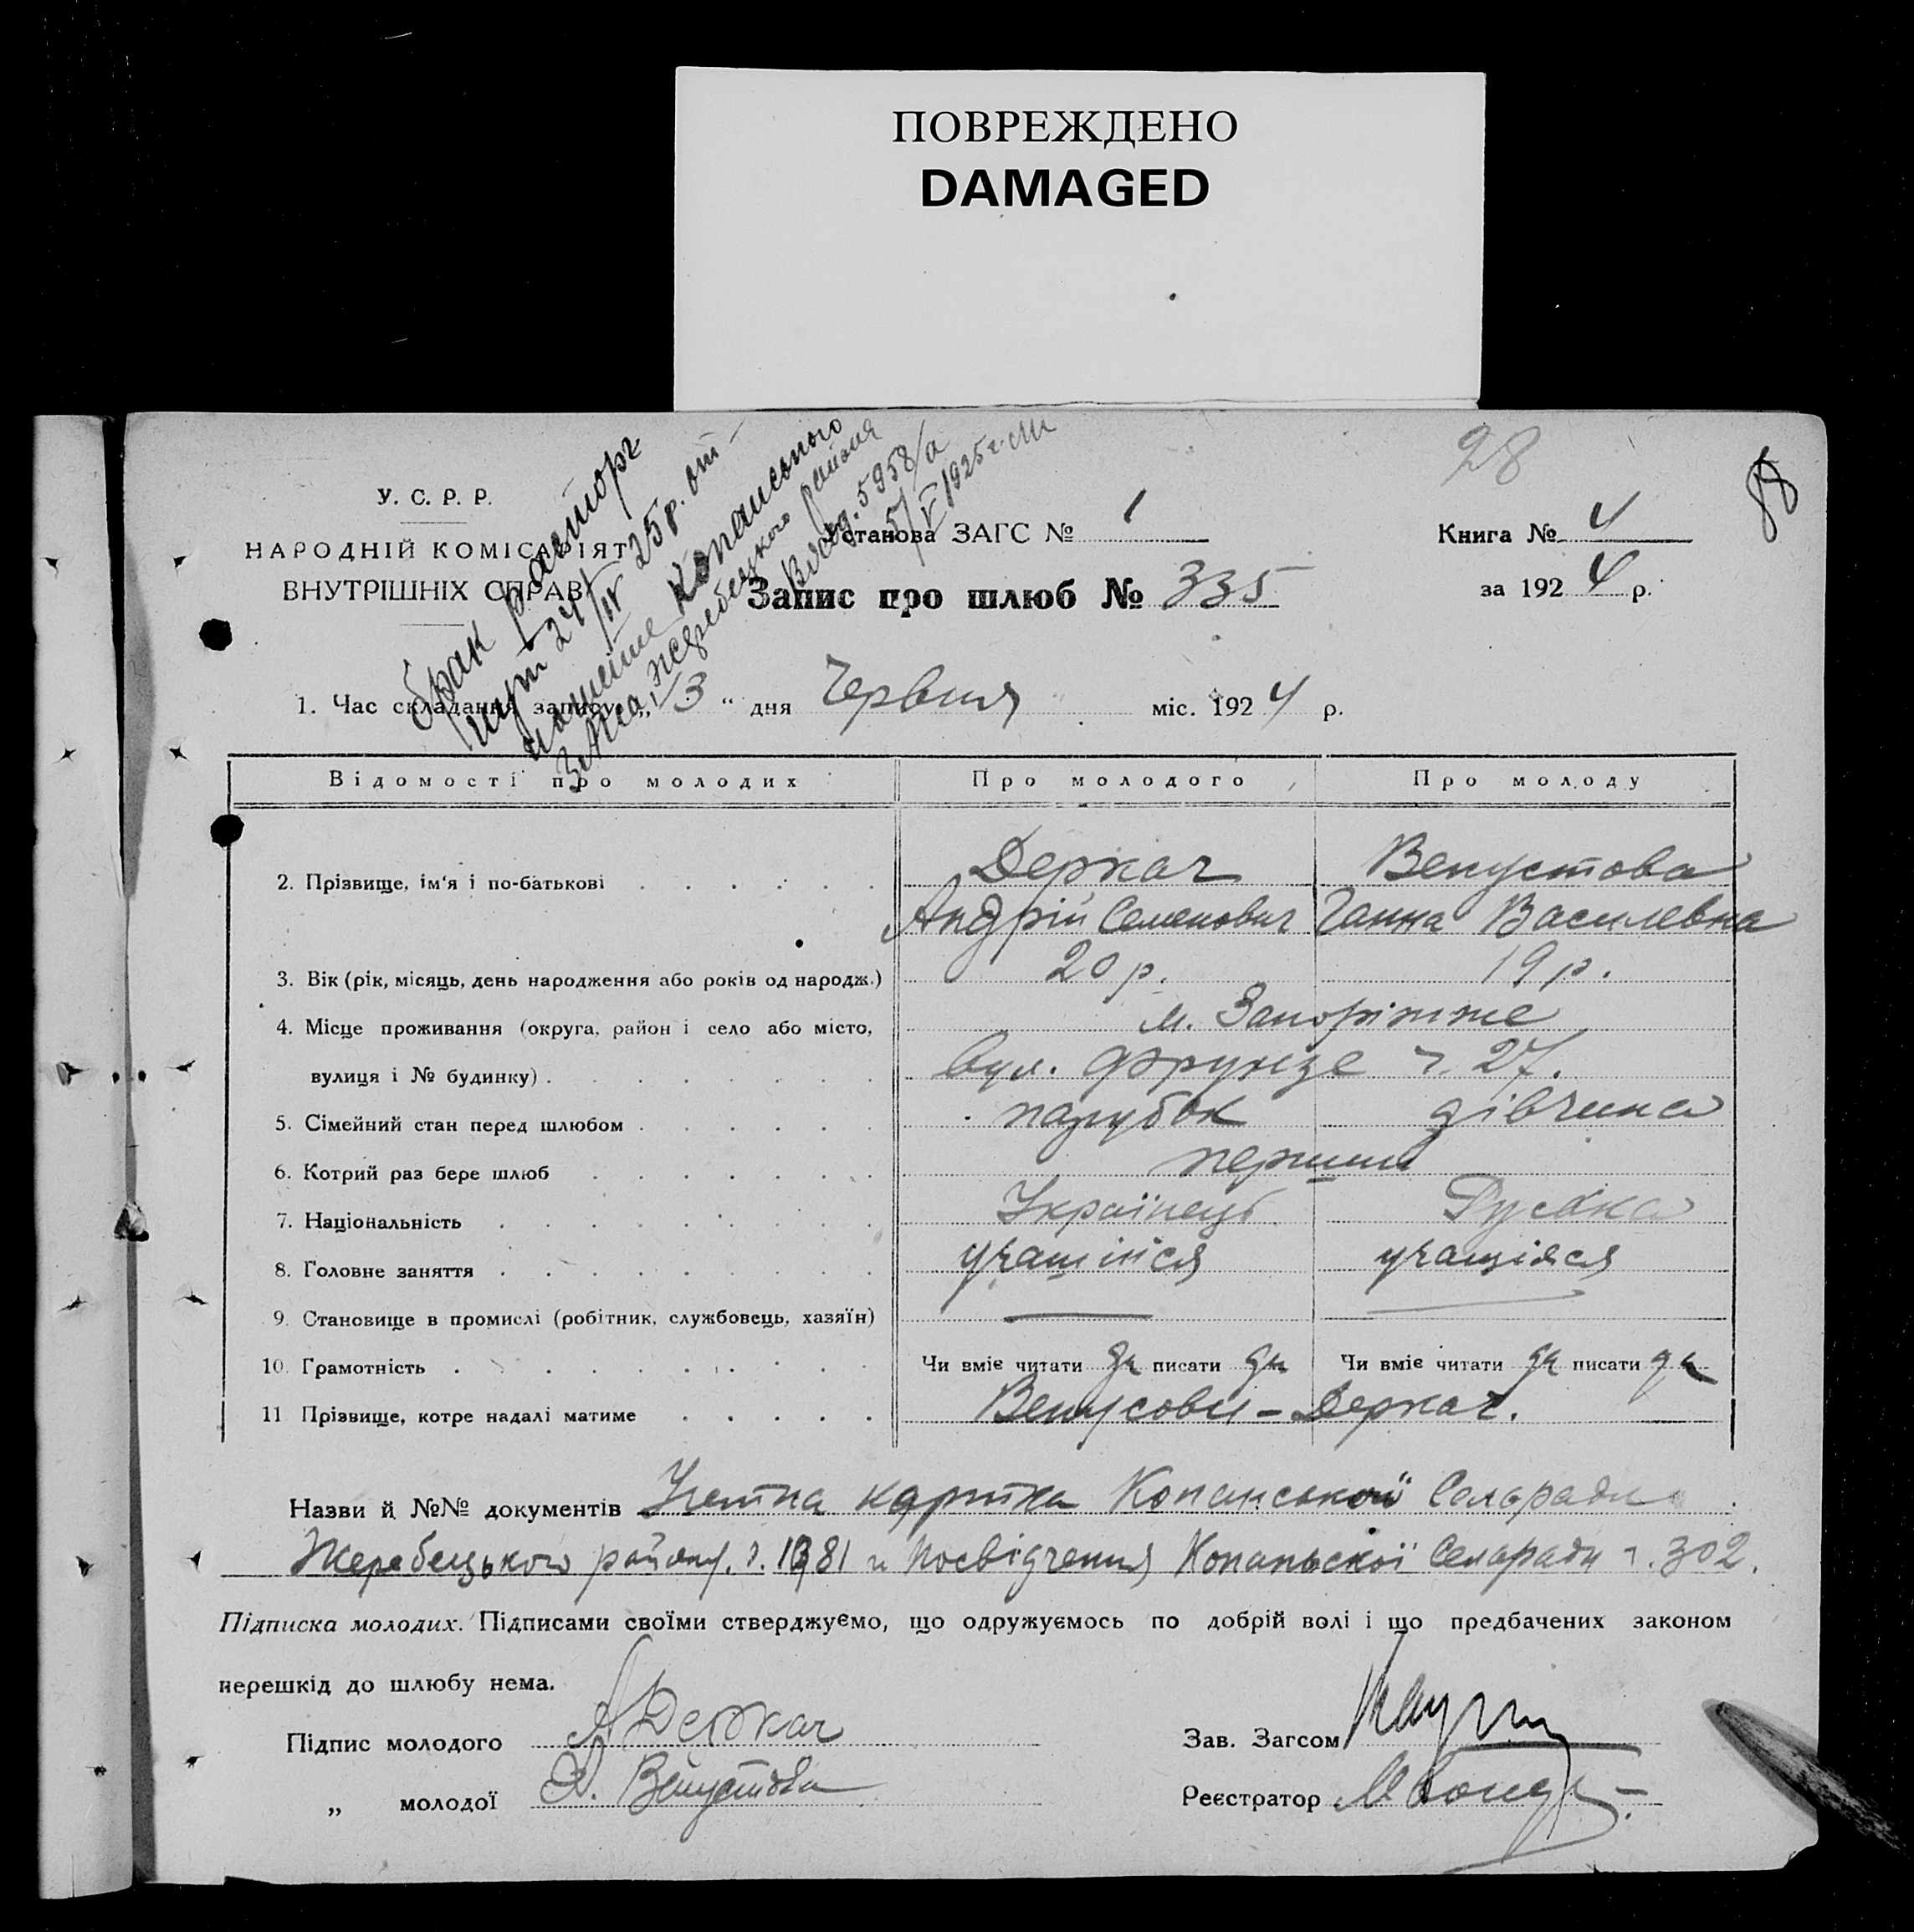 ПОВРЕЖДЕНО
DAMAGED
28
88
У. С. Р. Р.
НАРОДНІЙ КОМІСАРІЯТ
ВНУТРІШНІХ СПРАВ
брак расторг
нут 24/IV 25р. от
Копанського
Загса, Жеребецкого района
Вход. 5958/а
5/V 1925 г.
Установа ЗАГС № 1
Книга № 4
за 1924 р.
Запис про шлюб № 335
1. Час складання запису „13“ дня Червня міс. 1924 р.
Відомості про молодих Про молодого Про молоду
2. Прізвище, ім'я і по-батькові Деркач Венустова
Андрій Семенович Ганна Василевна
3. Вік (рік, місяць, день народження або років од народж.) 20 р. 19 р.
4. Місце проживання (округа, район і село або місто, м. Запоріжже
вулиця і № будинку) вул. Фрунзе ч. 27.
5. Сімейний стан перед шлюбом парубок дівчина
6. Котрий раз бере шлюб перший
7. Національність Українець Руська
8. Головне заняття учащийся учащіяся
9. Становище в промислі (робітник, службовець, хазяїн)
10. Грамотність Чи вміє читати да писати да Чи вміє читати да писати да
11 Прізвище, котре надалі матиме Деркач.
Назви й №№ документів Учетна картка Копанської Селоради
Жеребецького району. ч. 1381 и Посвідчення Копаньскої Селоради ч. 302.
Підписка молодих. Підписами своїми стверджуємо, що одружуємось по добрій волі і що предбачених законом
перешкід до шлюбу нема.
Підпис молодого АДеркач
„ молодої А. Венустова
Зав. Загсом
Реєстратор